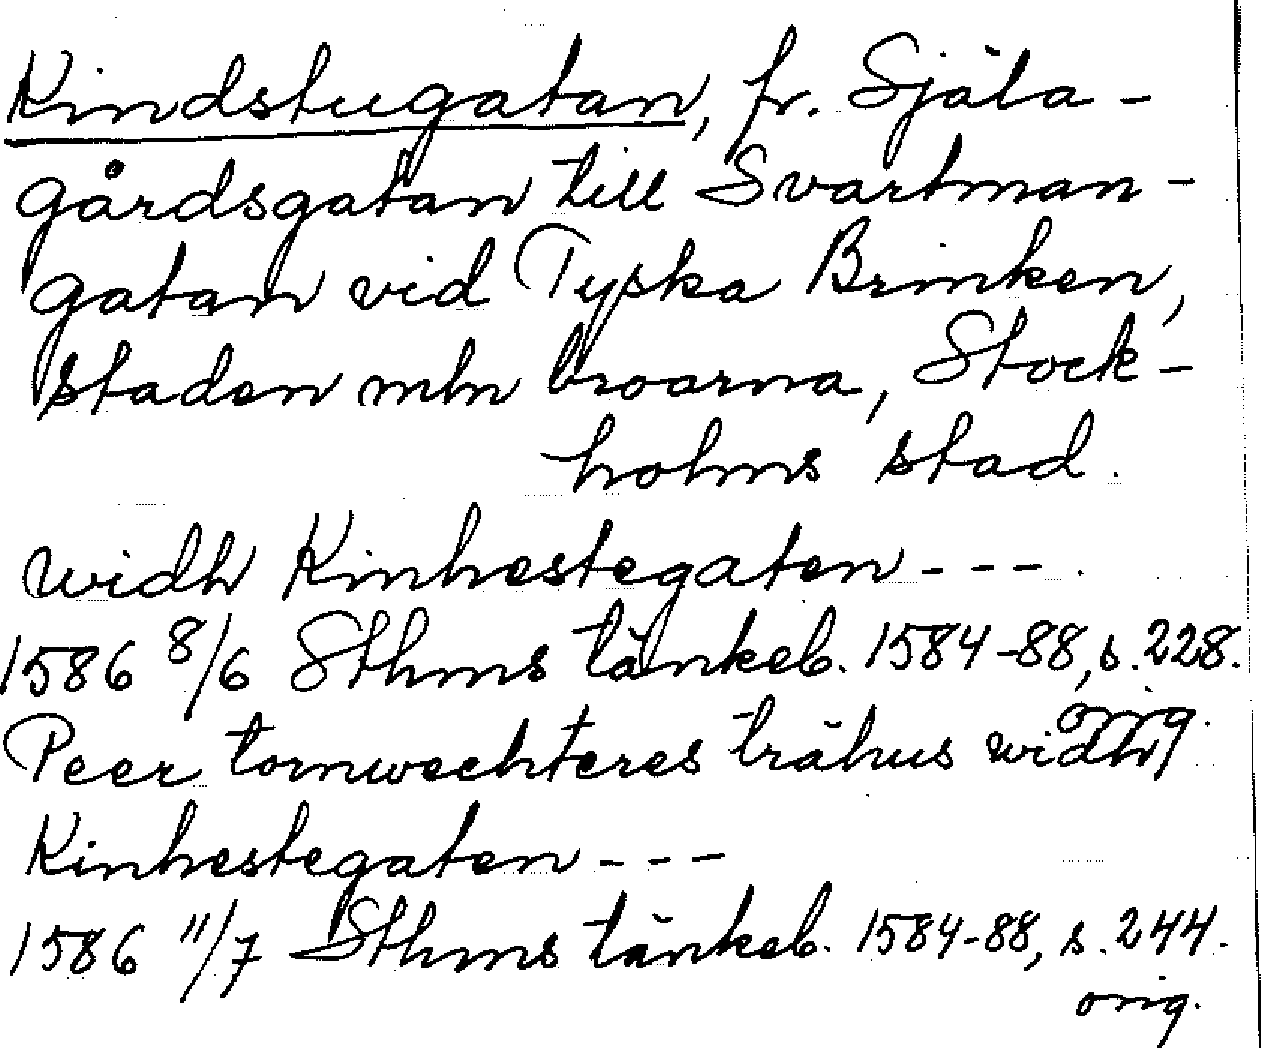 Kindstugatan, fr. Själa-
gårdsgatan till Svartman-
gatan vid Tyska Brinken,
staden mln broarna, Stock-
holms stad.
widh Kinhestegaten - - -
1586 8/6 Sthms tänkeb. 1584-88, s. 228.
orig.
Peer tornwechteres trähus widh
Kinhestegaten - - -
1586 11/7 Sthms tänkeb. 1584-88, s. 244.
orig.